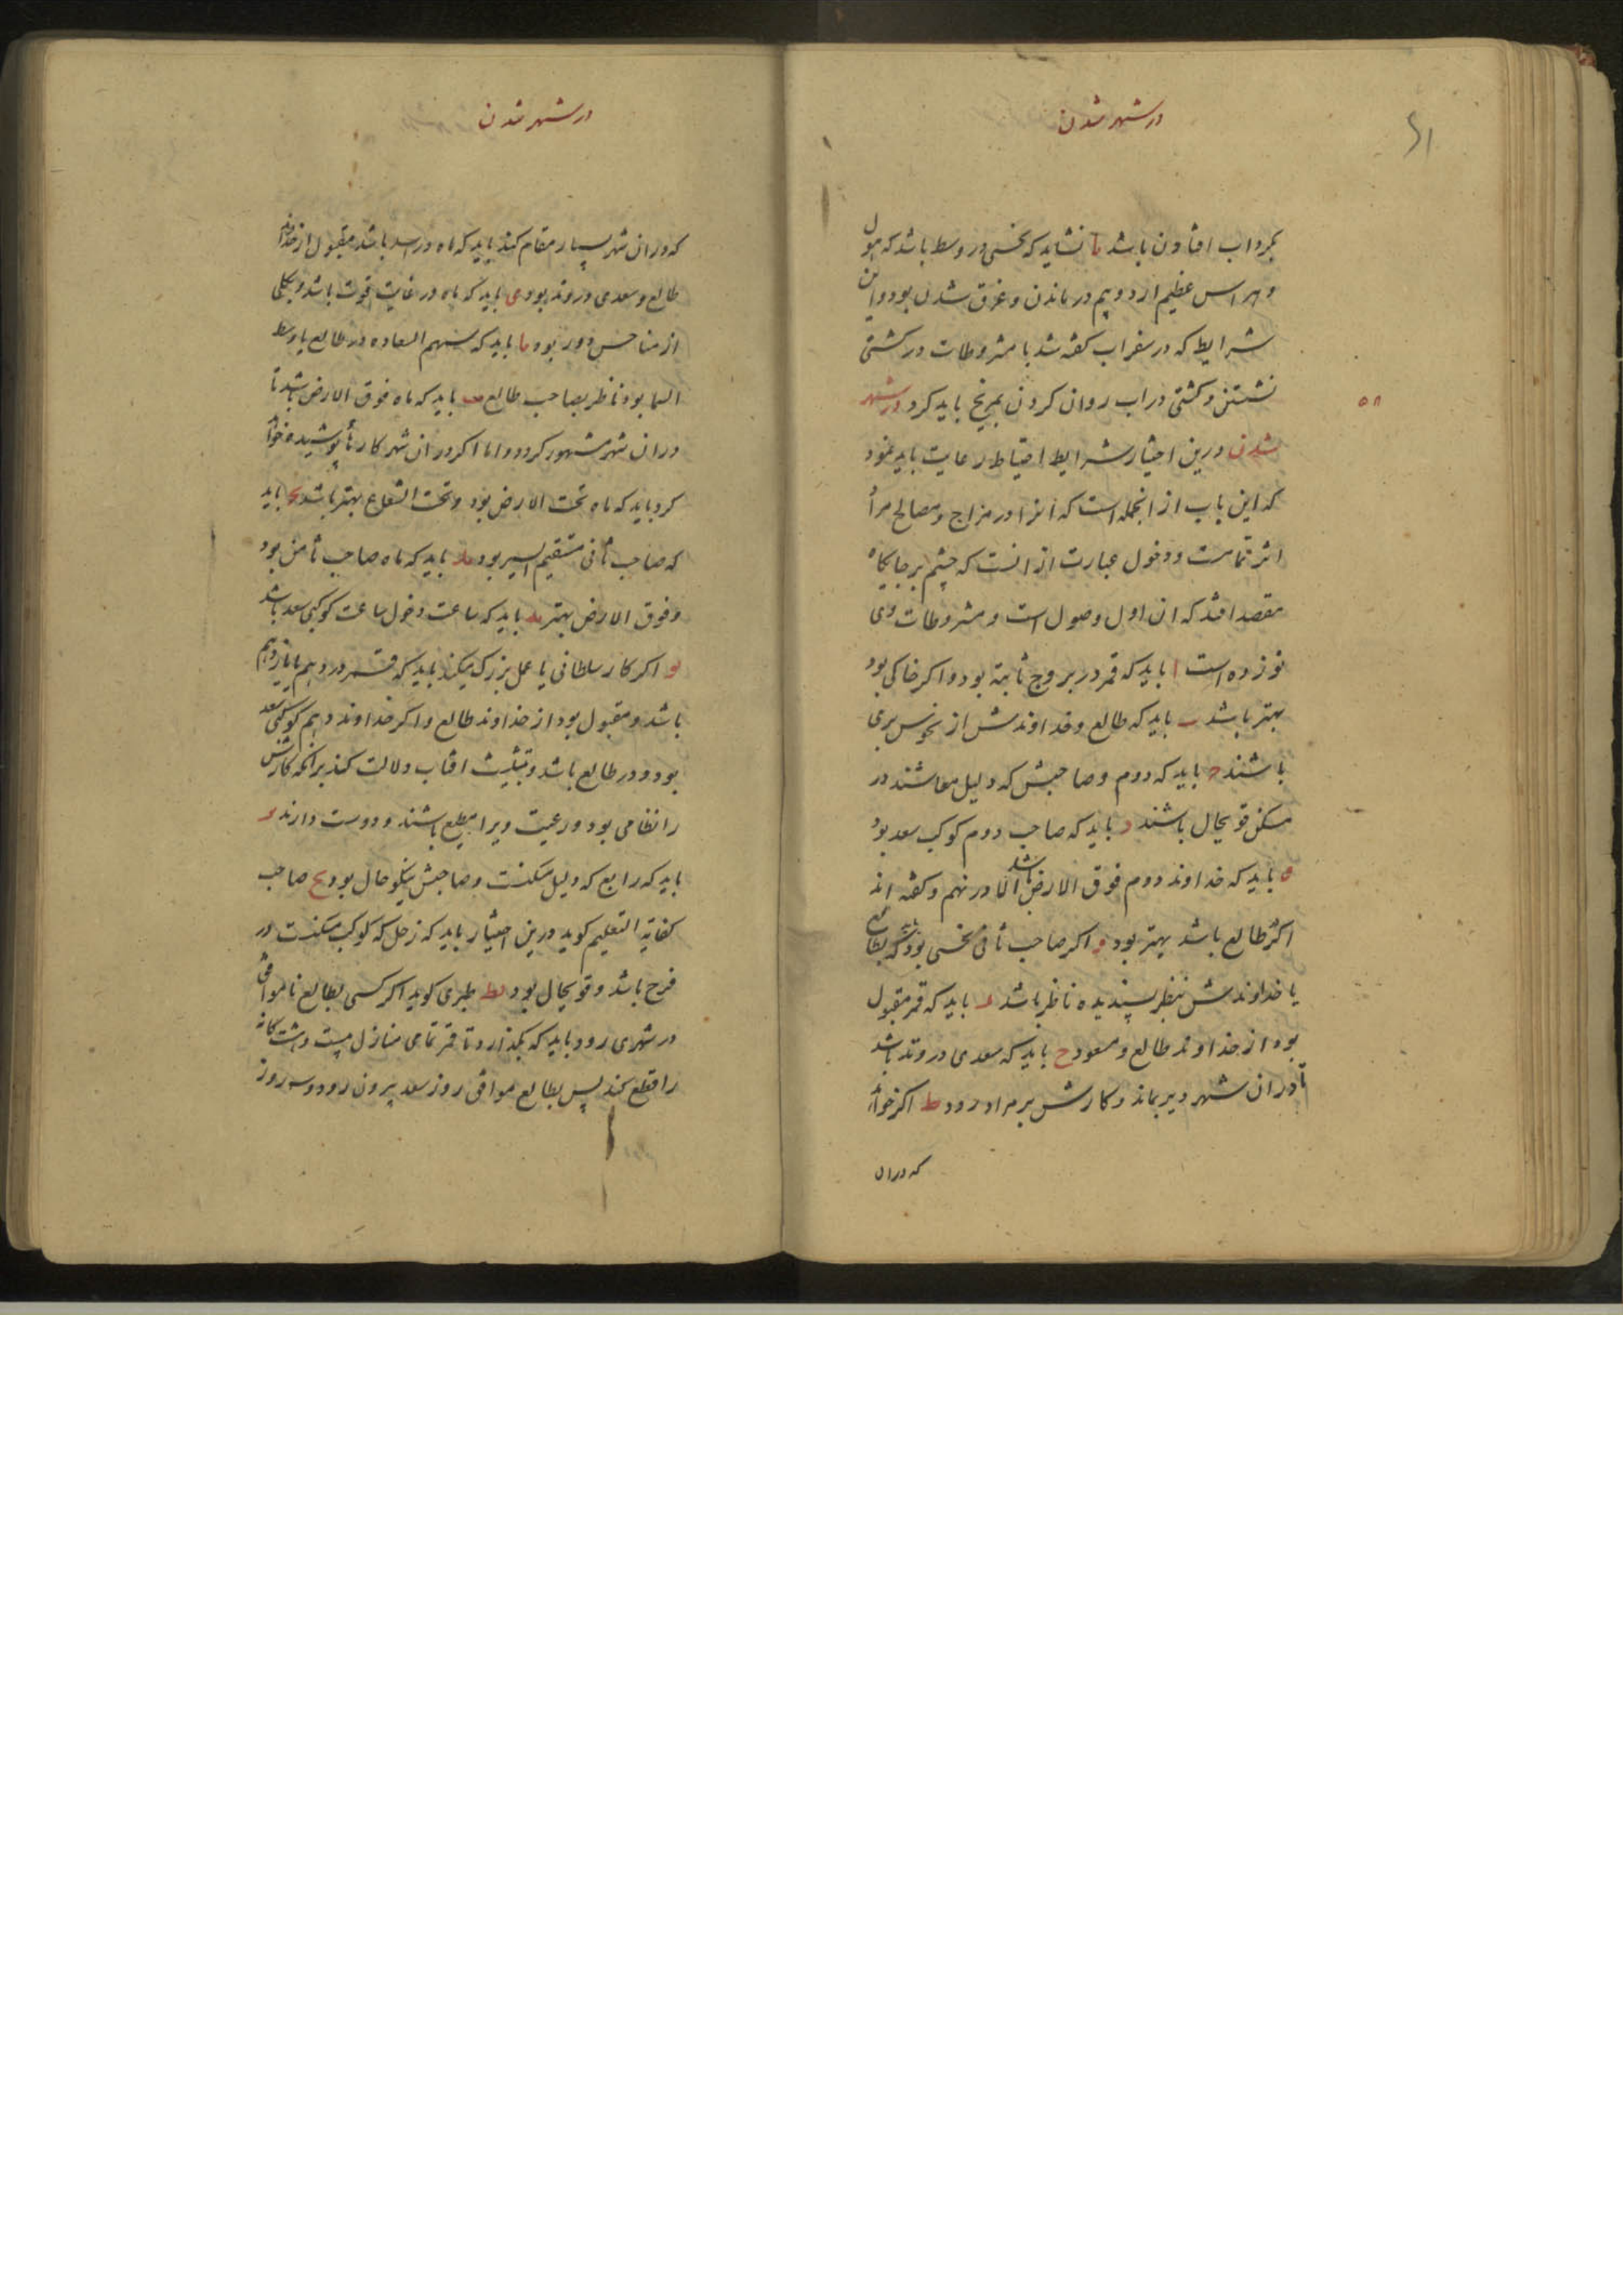 در شهر شدن
۶۱
بکرداب افتادن باشد یا نشاید که نحسی در وسط باشد که هول
و هراس عظیم ارد و بیم درماندن و غرق شدن بود و این
شرایط که در سفر اب کفته شد با مشروطات در کشتی
نشستن و کشتی در اب روان کردن بمریخ باید کرد در شهر
۵۸
شدن درین اختیار شرایط احتیاط رعایت باید نمود
که این باب از انجمله است که انرا در مزاج و مصالح مرد
اثر تمامست و دخول عبارت از انست که چشم بر جایکاه
مقصد افتد که ان اول وصول است و مشروطات وی
نوزده است ا باید که قمر در بروج ثابته بود و اکر خاکی بود
بهتر باشد ب باید که طالع و خداوندش از نحوس بری
باشند ج باید که دوم و صاحبش که دلیل معاشند در
مسکن قویحال باشند د باید که صاحب دوم کوکب سعد بود
ه باید که خداوند دوم فوق الارض باشد الا در نهم و کفته اند
اکر طالع باشد بهتر بود و اکر صاحب ثانی نحسی بود باید که بطالع
یا خداوندش بنظر پسندیده ناظر باشد ز باید که قمر مقبول
بود از خداوند طالع و مسعود ح باید که سعدی در وتد باشد
تا در ان شهر دیر بماند و کارش بر مراد رود ط اکر خواهد
که در ان
در شهر شدن
که در ان شهر بسیار مقام کند باید که ماه در اسد باشد مقبول از خداوند
طالع و سعدی در وتد بود ی باید که ماه در غایت قوت باشد و بکلی
از مناحس دور بود یا باید که سهم السعاده در طالع یا وسط
السما بود ناظر بصاحب طالع یب باید که ماه فوق الارض باشد تا
در ان شهر مشهور کردد و اما اکر در ان شهر کارها پوشیده خواهد
کرد باید که ماه تحت الارض بود و تحت الشعاع بهتر باشد یج باید
که صاحب ثانی مستقیم السیر بود ید باید که ماه صاحب ثامن بود
و فوق الارض بهتر یه باید که ساعت دخول ساعت کوکبی سعد باشد
یو اکر کار سلطانی یا عمل بزرک میکند باید که قمر در دهم یا یازدهم
باشد و مقبول بود از خداوند طالع و اکر خداوند دهم کوکبی سعد
بود و در طالع باشد و بتثلیث افتاب دلالت کند بر انکه کارش
را نظامی بود و رعیت ویرا مطیع باشند و دوست دارند یز
باید که رابع که دلیل سکنست و صاحبش نیکو حال بود یح صاحب
کفایة التعلیم کوید درین اختیار باید که زحل که کوکب سکنست در
فرح باشد و قویحال بود یط طبری کوید اکر کسی بطالع ناموافق
در شهری رود باید که بکذارد تا قمر تمامی منازل بیست و هشت کانه
را قطع کند پس بطالع موافق روز سعد بیرون رود و سه روز